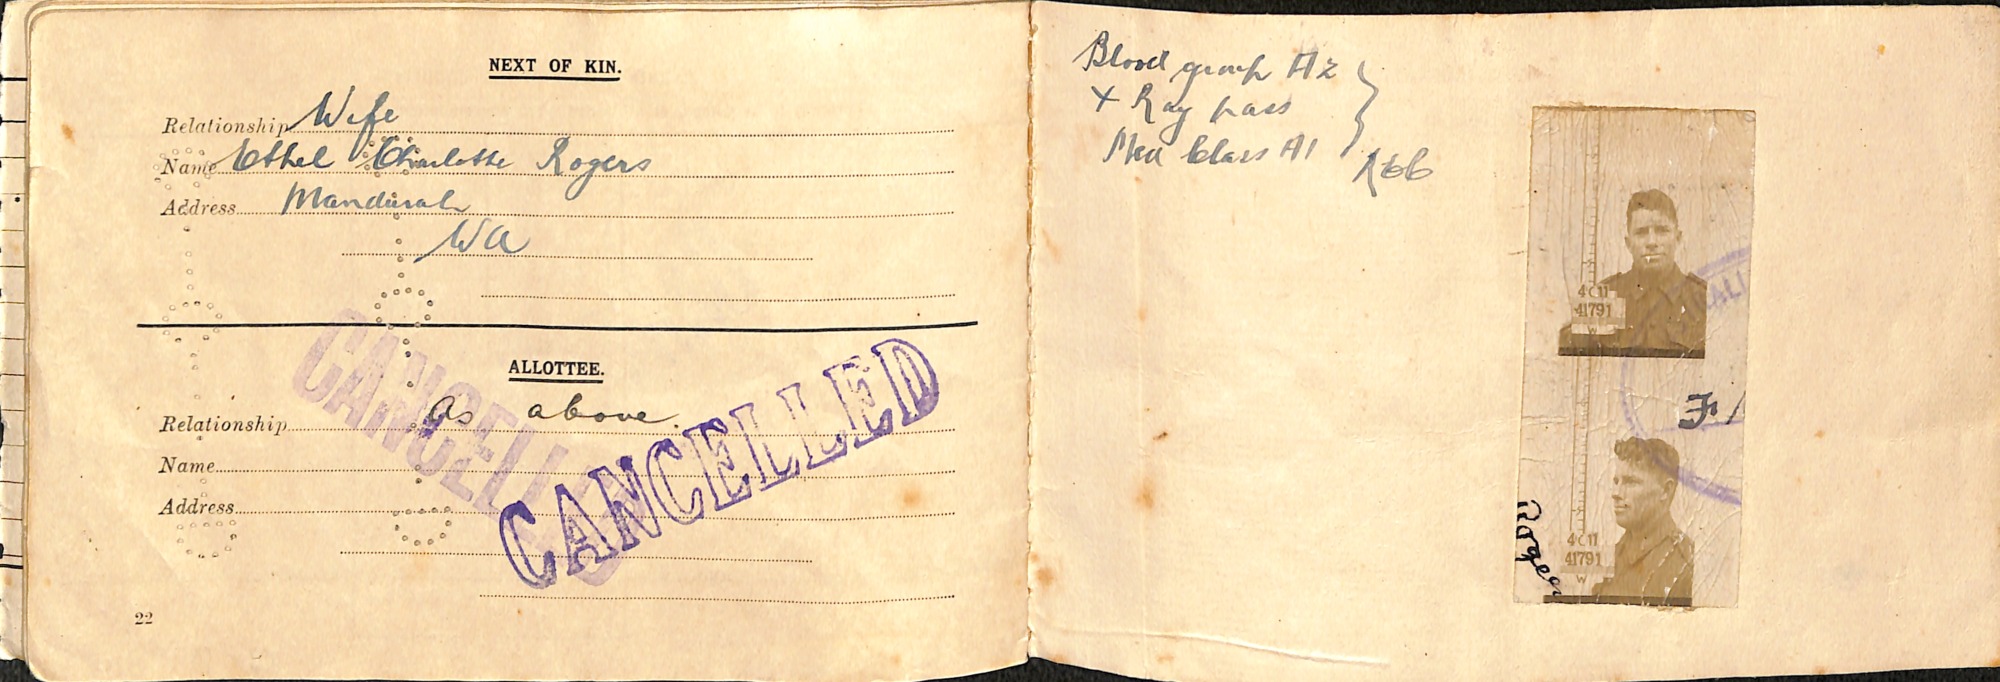 NEXT OF KIN.
Relationship Wife
Name Ethel Charlotte Rogers
Address Mandurah
WA
ALLOTTEE.
Relationship as above.
Name
Address
CANCELLED
CANCELLED
22
Blood group A2
X Ray pass
Med Class A1
4C11
41791
W
4C11
41791
W
Rogers